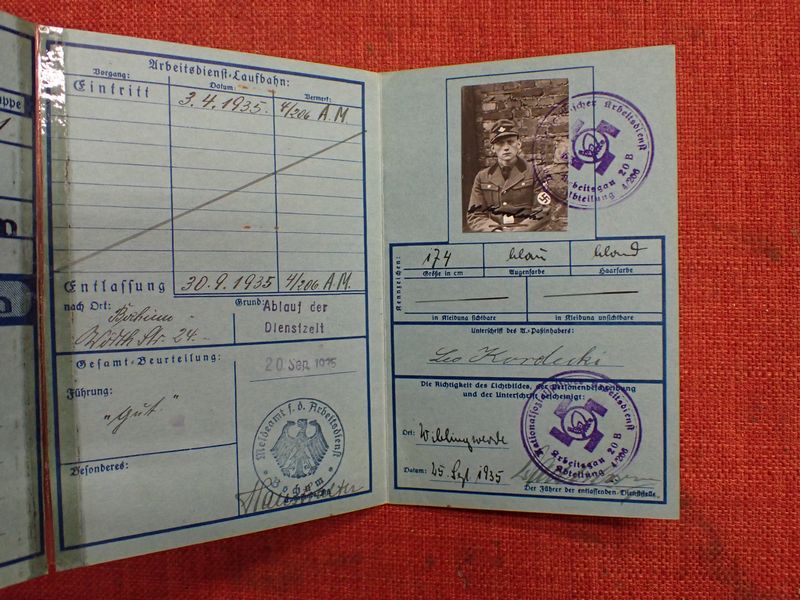 ppe
Arbeitsdienst-Laufbahn:
Vorgang: Datum: Vermerk:
Eintritt 3.4.1935. 4/206 A.M.
Entlassung 30.9.1935 4/206 A.M.
nach Ort: Grund:
Bochum Ablauf der
Wörth Str. 24. Dienstzeit
Gesamt-Beurteilung:
20 Sep. 1935
Führung:
"Gut"
Meldeamt f. d. Arbeitsdienst
Bochum
Besonderes:
Arbeitsdienst
Arbeitsgau 20 B
Abteilung 4/206
Kennzeichen:
174 blau blond
Größe in cm Augenfarbe Haarfarbe
in Kleidung sichtbare in Kleidung unsichtbare
Unterschrift des A.-Paßinhabers:
Leo Kordecki
Die Richtigkeit des Lichtbildes, der Personenbeschreibung
und der Unterschrift bescheinigt:
Nationalsoz. Arbeitsdienst
Arbeitsgau 20 B
Abteilung 4/206
Ort: Wiblingwerde
Datum: 25. Sept. 1935
Der Führer der entlassenden Dienststelle.